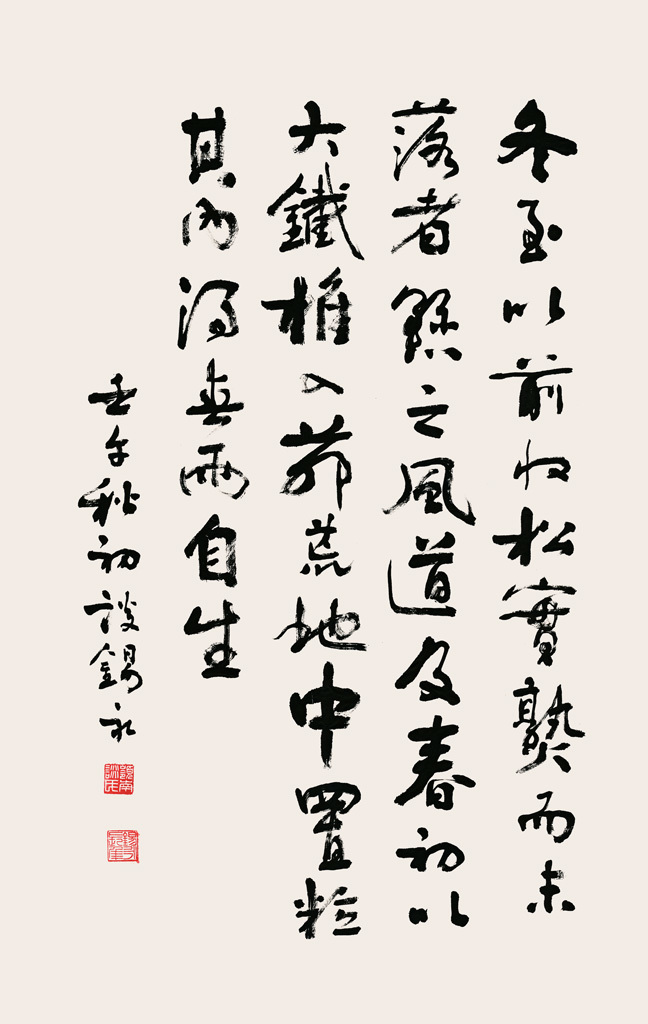 冬至以前收松實熟而未
落者懸之風道及春初以
大鐵椎入茆荒地中置粒
其内得春雨自生
壬午秋初談錫永